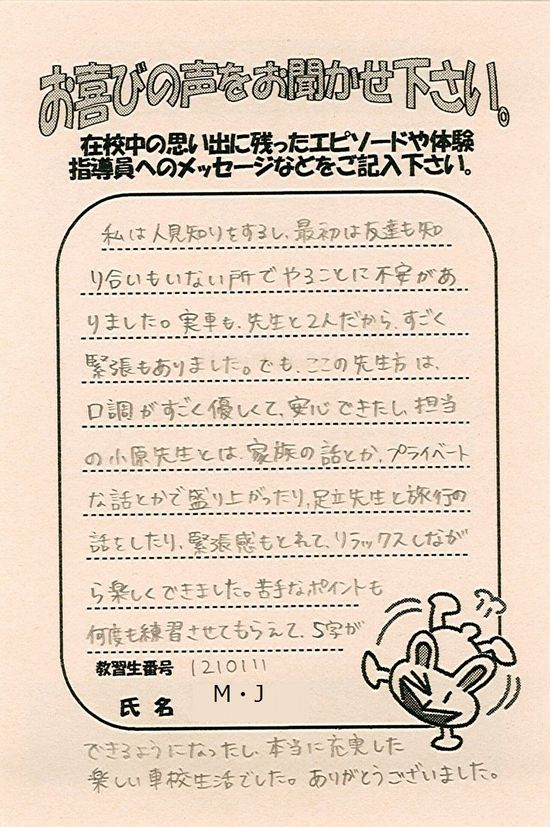 お喜びの声をお聞かせ下さい。
在校中の思い出に残ったエピソードや体験
指導員へのメッセージなどをご記入下さい。
私は人見知りをするし、最初は友達も知
り合いもいない所でやることに不安があ
りました。実車も、先生と2人だから、すごく
緊張もありました。でも、ここの先生方は、
口調がすごく優しくて、安心できたし、担当
の小原先生とは、家族の話とか、プライベート
な話とかで盛り上がったり、足立先生と旅行の
話をしたり、緊張感もとれて、リラックスしなが
ら楽しくできました。苦手なポイントも
何度も練習させてもらえて、S字が
教習生番号 1210111
氏名 M・J
できるようになったし、本当に充実した
楽しい車校生活でした。ありがとうございました。